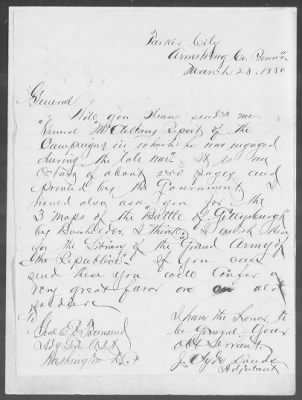 Parker City
Armstrong Co. Penn'a
March 23. 1880
General
Will you please send me
"General McClellans report of the
Campaigns in which he was engaged
during the late war". It is an
Octavo of about 200 pages and
printed by the Government. I
would also ask you for the
3 maps of the "Battle of Gettysburg"
by Bachelder. I think. I wish them
for the Library of the Grand Army of
the Republic. If you can
send these you will confer a
very great favor on our
To
I have the Honor to
be General. Your
Obt Servant
E. D. Townsend
Adj Gen U.S.A
Washington D.C.
J. Clyde
Adjutant